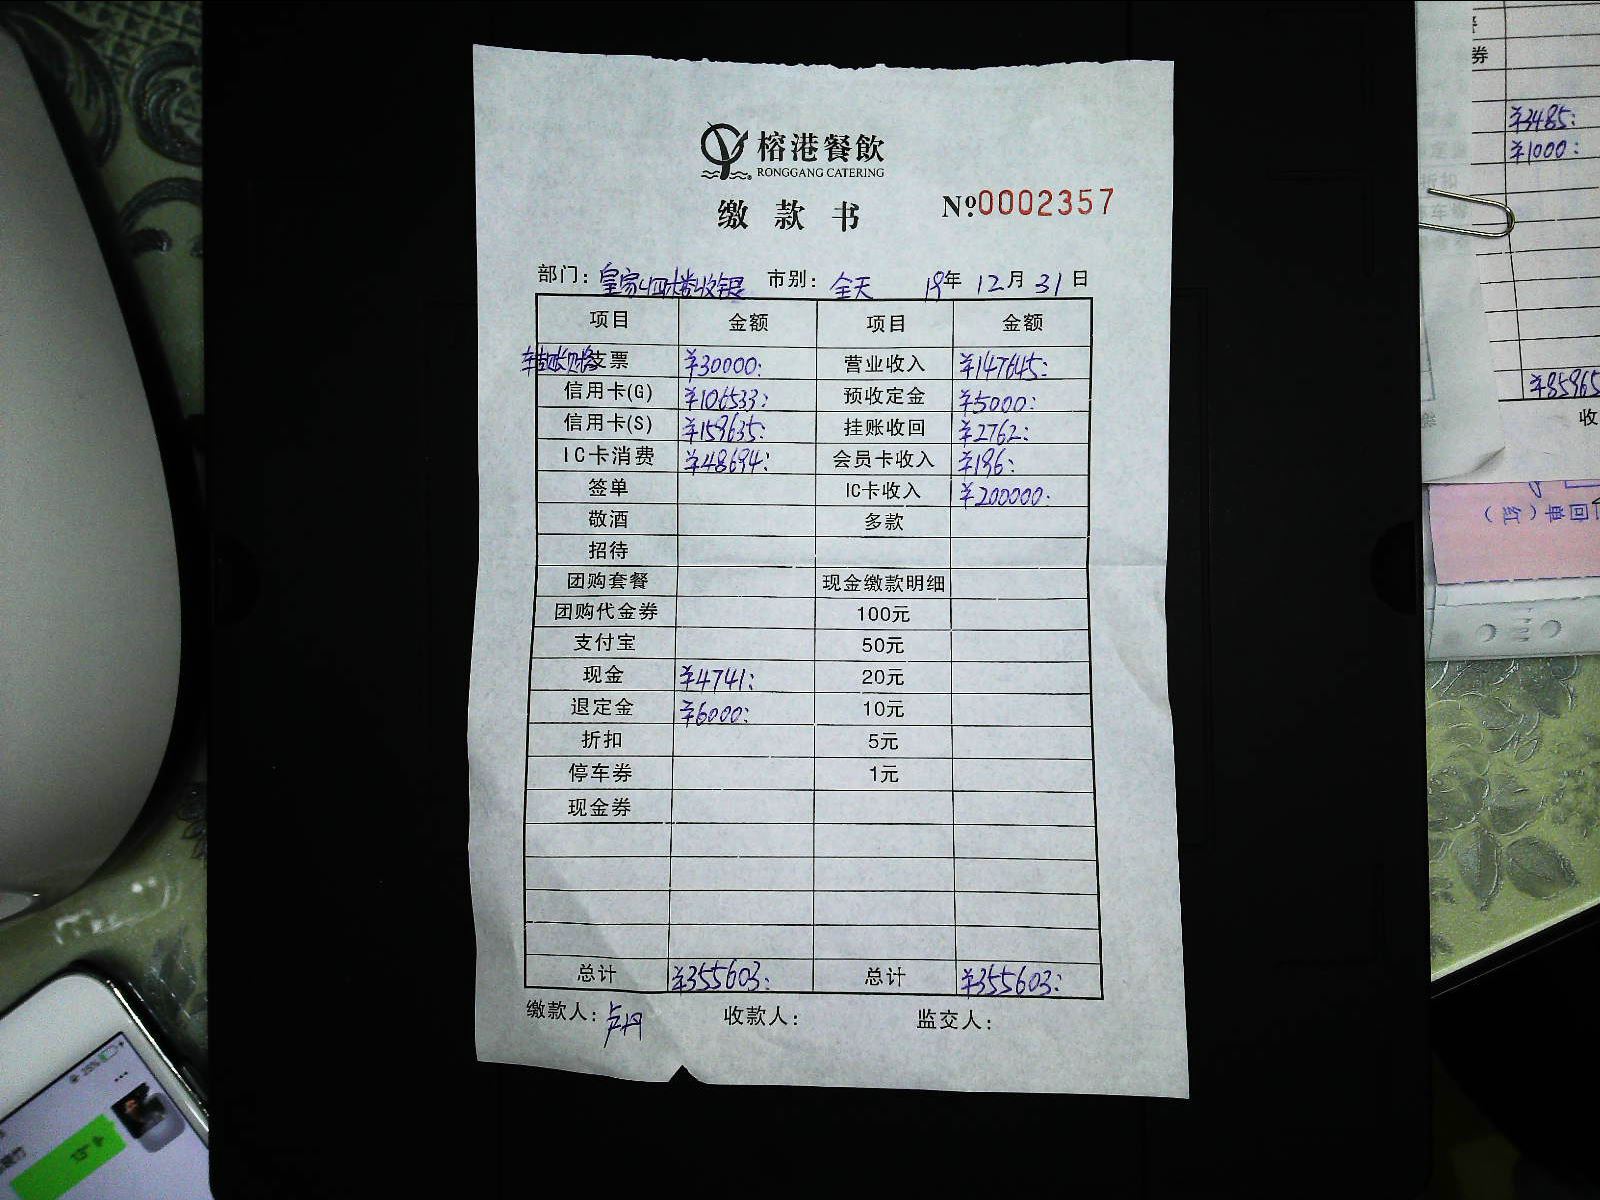 榕港餐飲
RONGGANG CATERING
缴款书
Nº:0002357
部门:皇家四楼收银 市别:全天 19年12月31日
项目 金额 项目 金额
支票 ¥30000: 营业收入 ¥147645:
信用卡(G) ¥106533: 预收定金 ¥5000:
信用卡(S) ¥159635: 挂账收回 ¥2762:
IC卡消费 ¥48694: 会员卡收入 ¥196:
签单 IC卡收入 ¥200000:
敬酒 多款
招待
团购套餐 现金缴款明细
团购代金券 100元
支付宝 50元
现金 ¥4741: 20元
退定金 ¥6000: 10元
折扣 5元
停车券 1元
现金券
总计 ¥355603: 总计 ¥355603:
缴款人:卢丹 收款人: 监交人:
券
¥3485:
¥1000:
¥85965
收
回单(红)